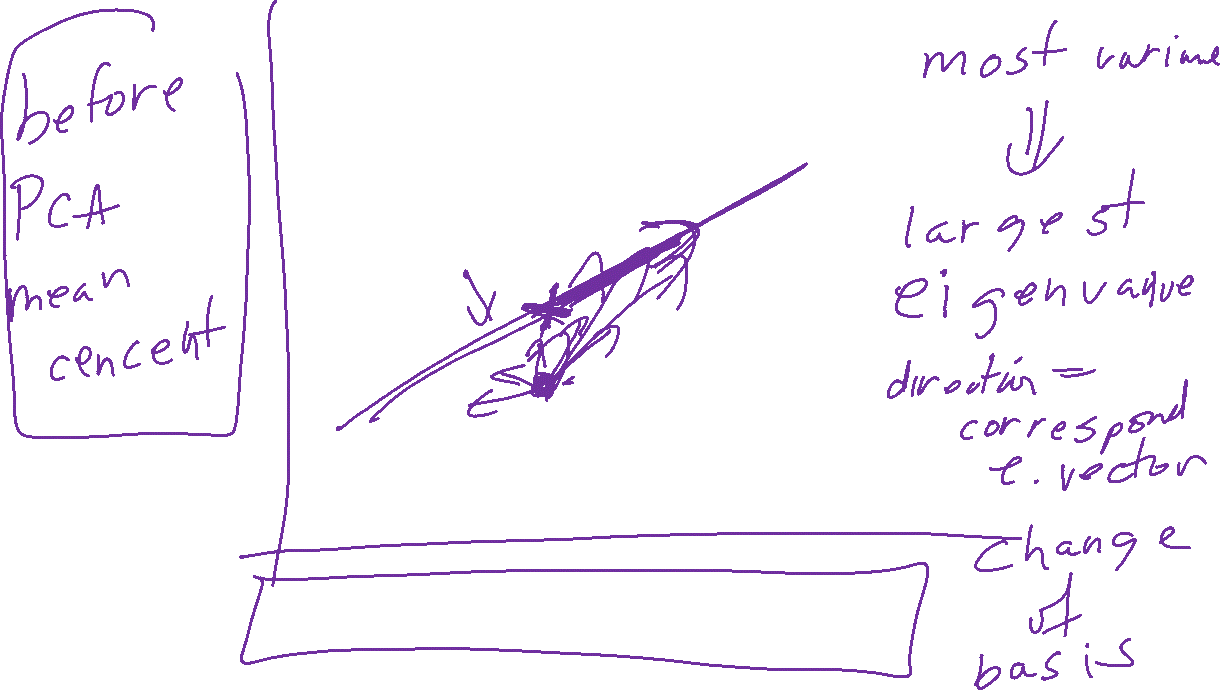 before
PCA
mean
cencent
most varians
largest
eigenvaque
direction =
correspond
e. vector
change
of
basis